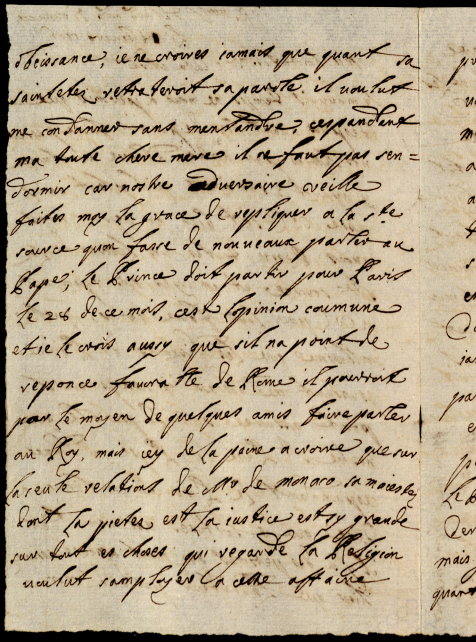 obeissance, ie ne croires iamais que quant sa
saintetez retrateroit sa parole il voulut
me condanner sans mentandre, cespandent
ma toute chere mere il ne faut pas sen=
dormir car nostre adversaire veille
faites moy la grace de repliquer a la ste
source quon fasse de nouveaux parler au
Pape, le Prince doit partir pour Paris
le 28 de ce mois, cest lopinion coumune
et ie le crois aussy que sil na point de
reponce favorable de Rome il pourroit
par le moyen de quelques amis faire parler
au Roy, mais iey de la paine a croire que sur
la seule relations de Mr de monaco sa maiestez
dont la pietez est la iustice est sy grande
sur tout es choses qui regarde la Religion
voulut samployer a cette affaire